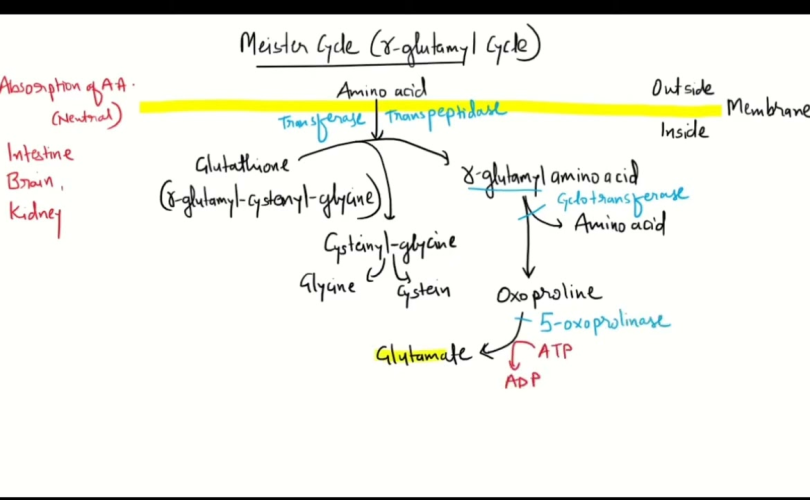 Meister Cycle (γ-glutamyl Cycle)
Absorption of AA.
(Neutral)
Intestine
Brain,
Kidney
Amino acid
Outside
Membrane
Inside
Transferase
Transpeptidase
Glutathione
(γ-glutamyl-cystenyl-glycine)
γ-glutamyl amino acid
Gclotransferase
Amino acid
Cysteinyl-glycine
Glycine
Cystein
Oxoproline
5-oxoprolinase
Glutamate
ATP
ADP